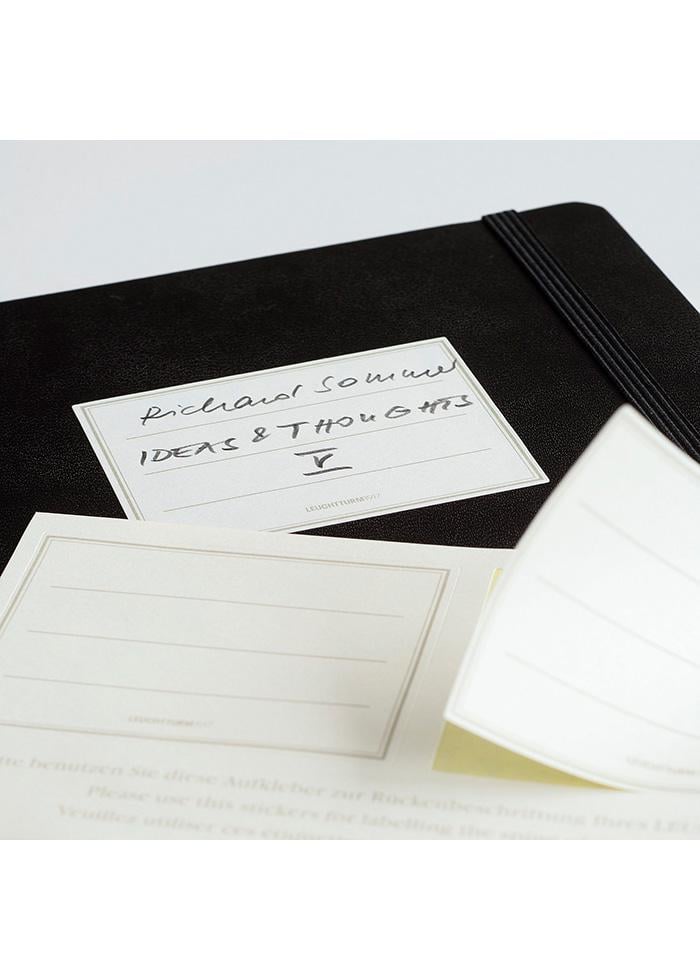 Richard Sommer
IDEAS & THOUGHTS
V
LEUCHTTURM1917
LEUCHTTURM1917
benutzen Sie diese Aufkleber zur Rückenbeschriftung Ihres
Please use this stickers for labelling the spine
Veuillez utiliser ces